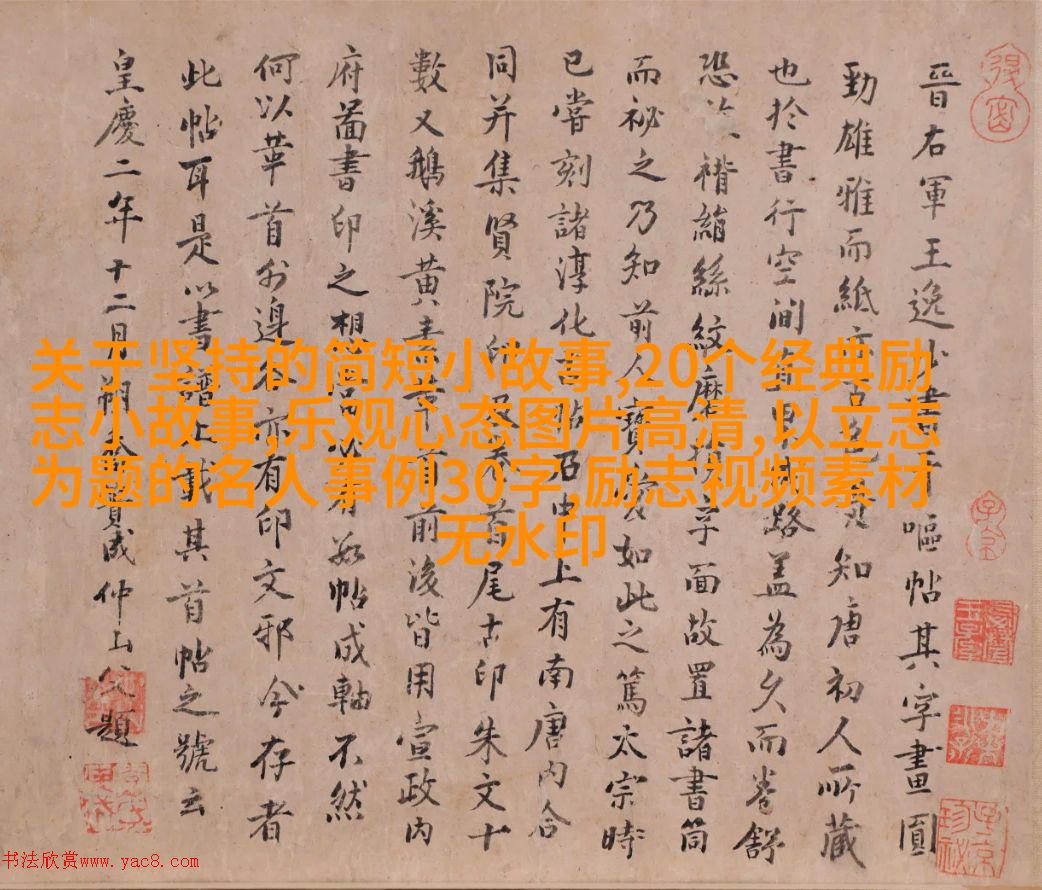 晉右軍王逸少書千嘔帖其字畫圓
勁雄雅而紙亦古色知唐初人所藏
也於書行空間路蓋為久而卷舒
恐褙絹絲紋磨字面故置諸書筒
而祕之乃知前人寶如此之篤太宗時
已嘗刻諸淳化帖上有南唐內合
同并集賢院印尾古印朱文十
數又鵝溪黃素首前後皆用宣政內
府啚書印之想帖成軸不然
何以華首外邊亦有印文邪今存者
此帖耳是以書譜止載其首帖之號云
皇慶二年十二月朔成仲山父題
关于坚持的简短小故事,20个经典励
志小故事,乐观心态图片高清,以立志
为题的名人事例30字,励志视频素材
无水印
书法欣赏www.yac8.com